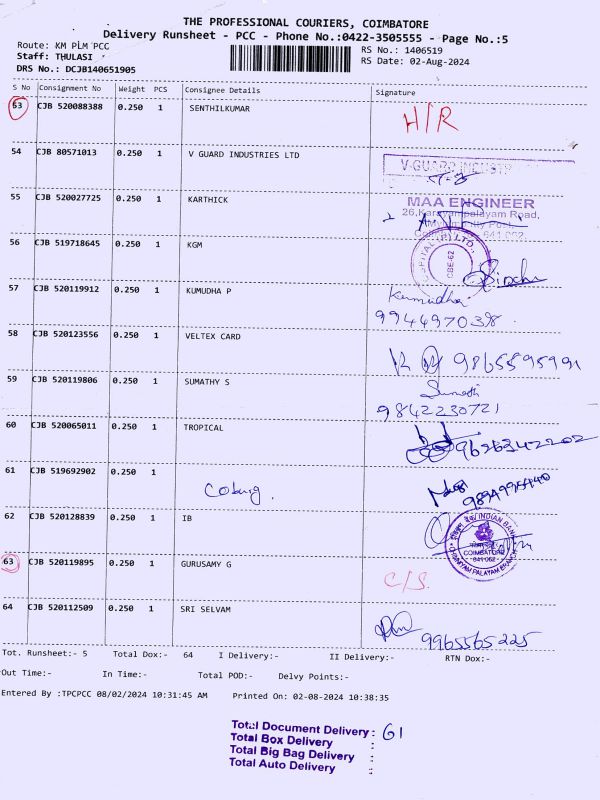 THE PROFESSIONAL COURIERS, COIMBATORE
Delivery Runsheet - PCC - Phone No.:0422-3505555 - Page No.:5
Route: KM PLM PCC
Staff: THULASI
DRS No.: DCJB140651905
RS No.: 1406519
RS Date: 02-Aug-2024
S No Consignment No Weight PCS Consignee Details Signature
53 CJB 520088388 0.250 1 SENTHILKUMAR H/R
54 CJB 80571013 0.250 1 V GUARD INDUSTRIES LTD
V-GUARD INDUSTR
55 CJB 520027725 0.250 1 KARTHICK
MAA ENGINEER
26,Karayampalayam Road,
56 CJB 519718645 0.250 1 KGM
CBE-62
57 CJB 520119912 0.250 1 KUMUDHA P Kumudha
994497038
58 CJB 520123556 0.250 1 VELTEX CARD 9865595991
59 CJB 520119806 0.250 1 SUMATHY S Sumathi
9842230721
60 CJB 520065011 0.250 1 TROPICAL 9626342202
61 CJB 519692902 0.250 1
62 CJB 520128839 0.250 1 IB
INDIAN BANK
COIMBATORE
641 062
63 CJB 520119895 0.250 1 GURUSAMY G C/S.
64 CJB 520112509 0.250 1 SRI SELVAM 9965565225
Tot. Runsheet:- 5 Total Dox:- 64 I Delivery:- II Delivery:- RTN Dox:-
Out Time:- In Time:- Total POD:- Delvy Points:-
Entered By :TPCPCC 08/02/2024 10:31:45 AM Printed On: 02-08-2024 10:38:35
Total Document Delivery : 61
Total Box Delivery :
Total Big Bag Delivery :
Total Auto Delivery :